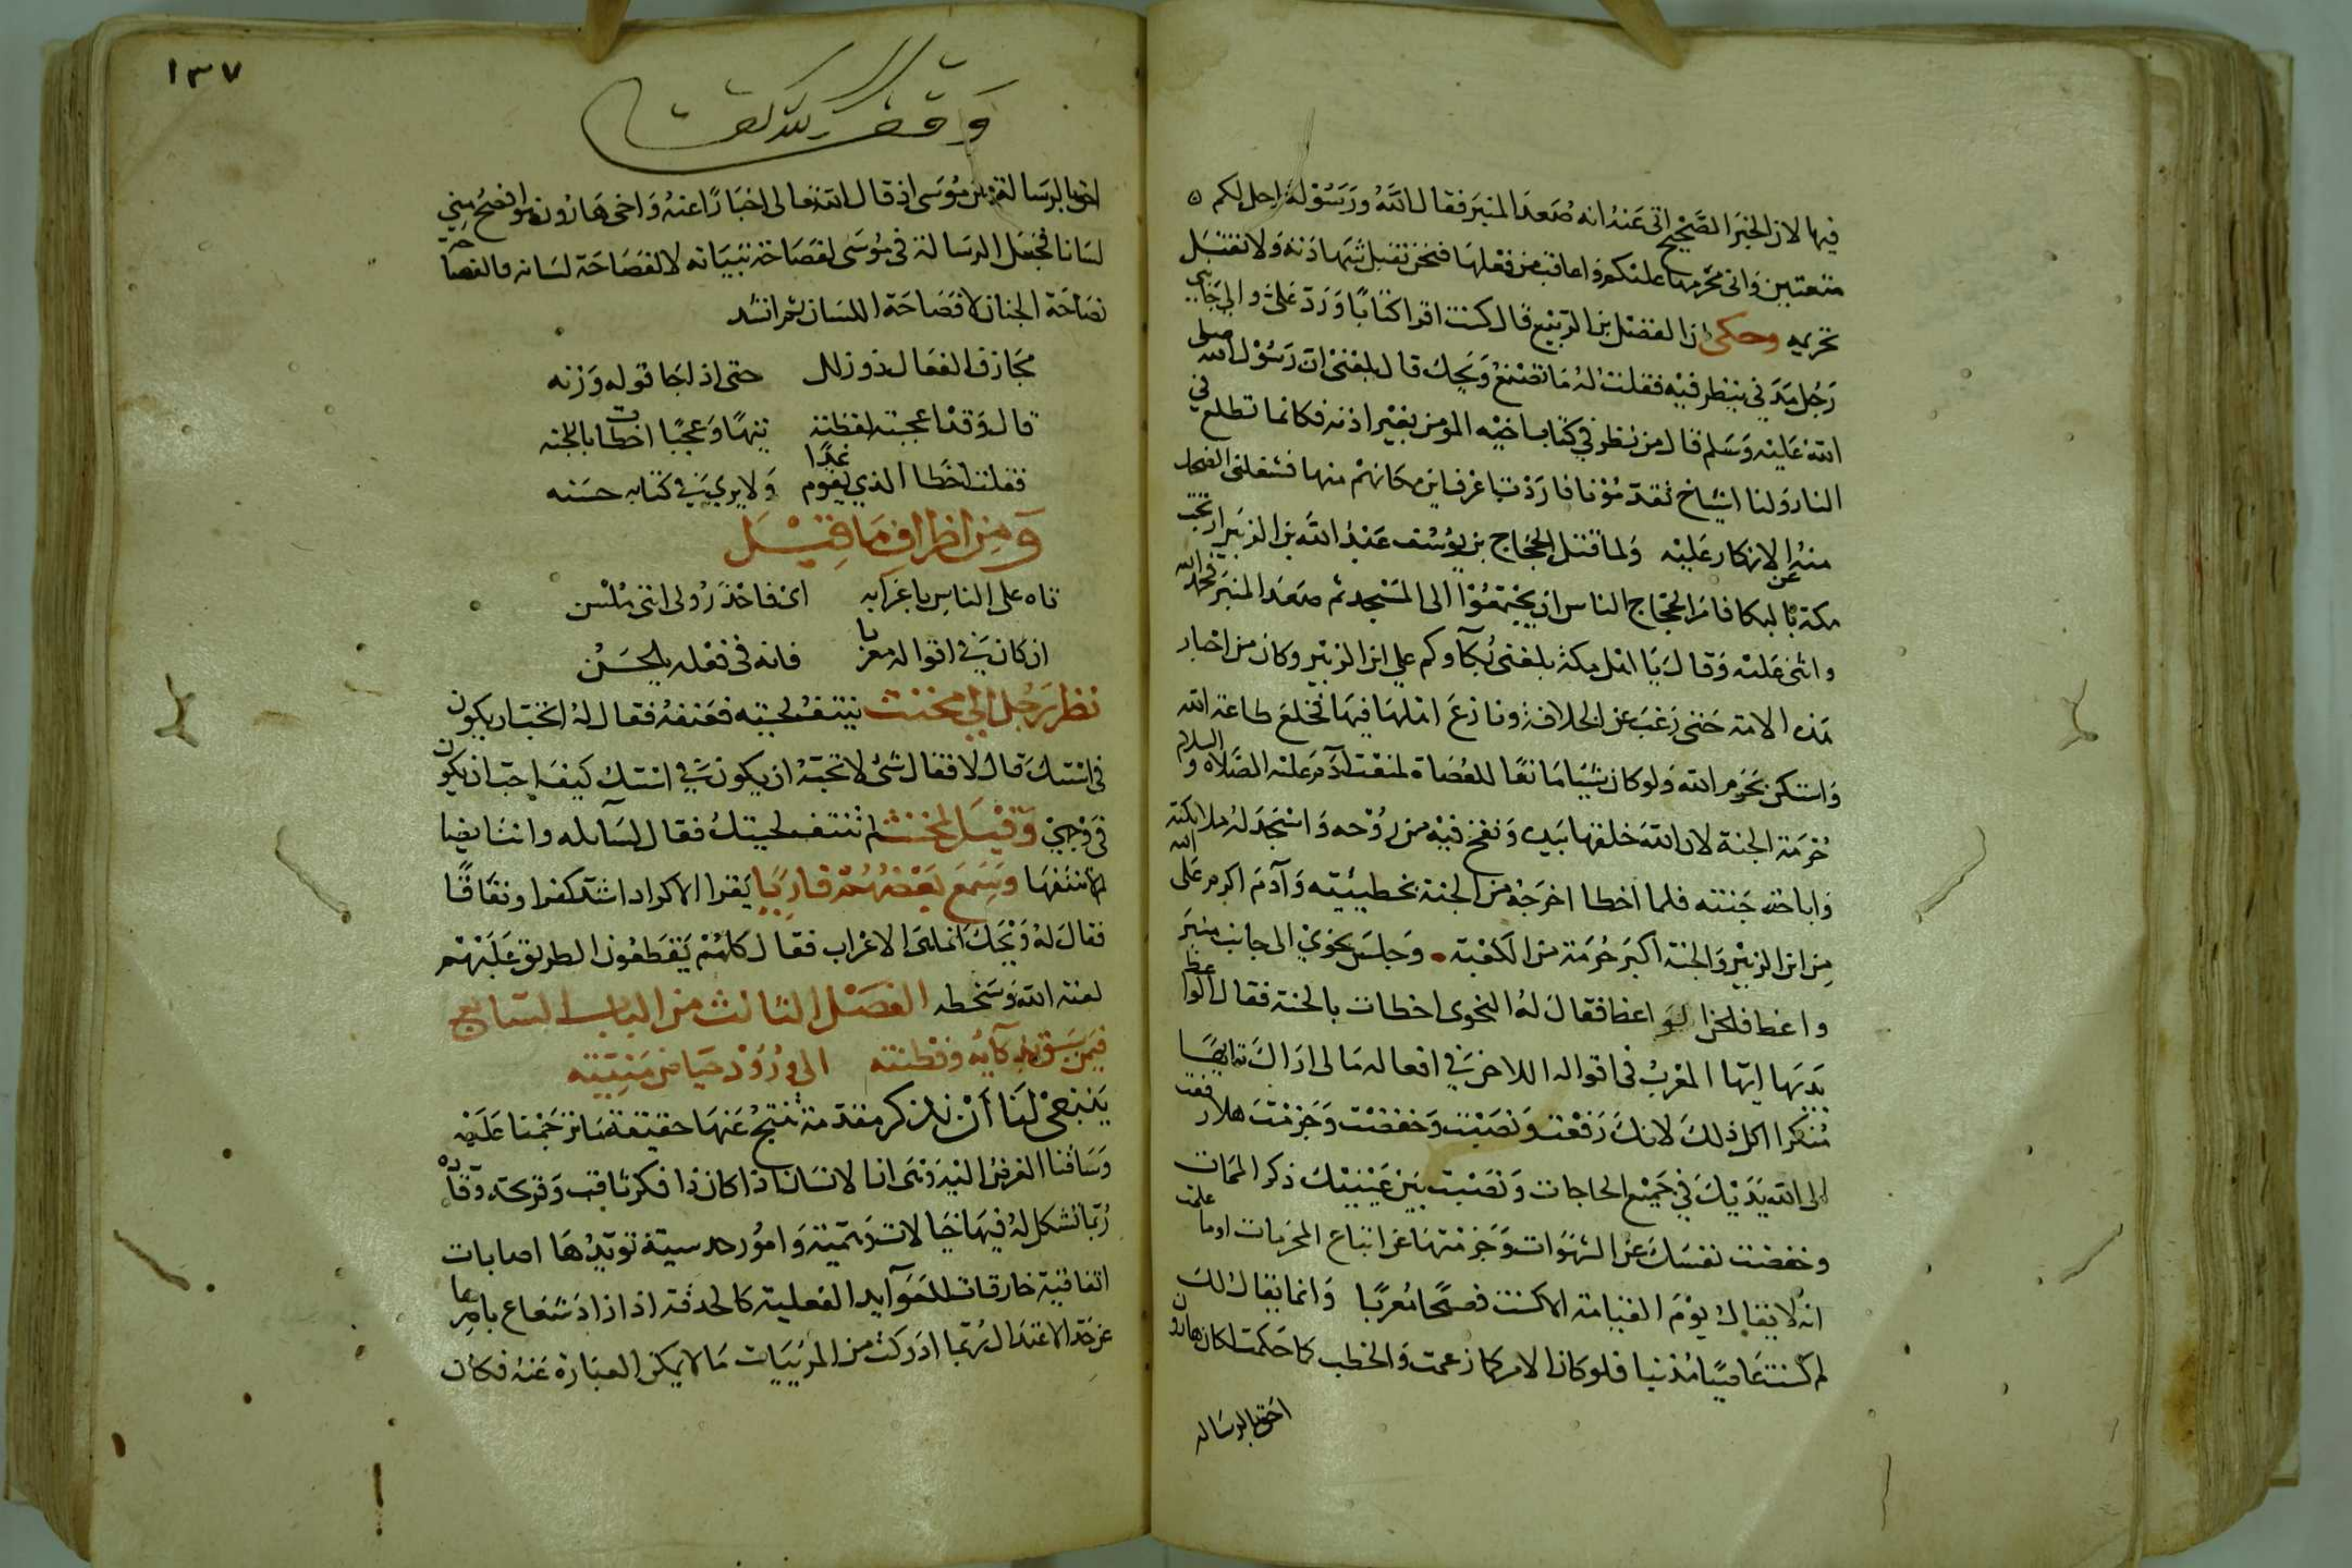 فيها لان الخبر الصحيح اتى عنه انه صعد المنبر فقال الله ورسوله احل لكم
متعتين وانى محرمها عليكم واعاقب من فعلها فنحن نقبل شهادته ولا نقبل
تحريمه وحكى ان الفضل بن الربيع قال كنت اقرا كتابا ورد على والى جانبي
رجل مدني ينظر فيه فقلت له ما تصنع ويحك قال بلغني ان رسول الله صلى
الله عليه وسلم قال من نظر في كتاب اخيه المومن بغير اذنه فكانما تطلع في
النار ولنا اشياخ تقدمونا فاردت اعرف اين مكانهم منها فشغلنى الضحك
منه عن الانكار عليه ولما قتل الحجاج بن يوسف عبد الله بن الزبير ارتجت
مكة بالبكا فامر الحجاج الناس ان يجتمعوا الى المسجد ثم صعد المنبر فحمد الله
واثنى عليه وقال يا اهل مكة بلغنى بكآوكم على ابن الزبير وكان من اخيار
هذه الامة حتى رغب عن الخلافة ونازع اهلها فيها فخلع طاعة الله
واستكن بحرم الله ولو كان شيا مانعا للعصاة لمنعت آدم عليه الصلاه والسلام
حرمة الجنة لان الله خلقه بيده ونفخ فيه من روحه واسجد له ملايكته
واباحه جنته فلما اخطا اخرجه من الجنة بخطيئته وآدم اكرم على الله
من ابن الزبير والجنة اكبر حرمة من الكعبة وجلس نحوي الى جانب منبر
واعظ فلحن الواعظ فقال له النحوى اخطات بالحنة فقال الواعظ
بديها ايها المعرب في اقواله اللاحن في افعاله مالى اراك تايها
متنكرا اكل ذلك لانك رفعت ونصبت وخفضت وجزمت هلا رفعت
الى الله يديك في جميع الحاجات ونصبت بين عينيك ذكر الممات
وخفضت نفسك عن الشهوات وجزمتها عن اتباع المحرمات اوما علمت
انه لا يقال يوم القيامة الا كنت فصيحا معربا وانما يقال لك
لم كنت عاصيا مذنبا فلو كان الامر كما زعمت والخطب كما حكمت لكان هارون
احق بالرساله
١٣٧
وقف لله تعالى
احق بالرسالة من موسى اذ قال الله تعالى اخبارا عنه واخى هارون هو افصح مني
لسانا فجعل الرسالة في موسى لفصاحة تبيانه لا لفصاحة لسانه فالفصاحة
فصاحة الجنان لا فصاحة اللسان ثم انشد
مجازف الفعال ذو زلل حتى اذا جا قوله وزنه
قال وقد اعجبته لفظته تيها وعجبا اخطات بالحنه
فقلت اخطا الذي يقوم غدا ولا يرى في كتابه حسنه
ومن اظراف ما قيل
تاه على الناس باعرابه اى فاحذرولى اننى ملسن
ان كان في اقواله معربا فانه في فعله يلحن
نظر رجل الى مخنث ينتف لحيته فعنفه فقال له اتحب ان يكون
في استك قال لا فقال شئ لا تحبه ان يكون في استك كيف احب ان يكون
في وجهي وقيل لمخنث لم تنتف لحيتك فقال لسايله وانت ايضا
لم لا تنتفها وسمع بعضهم قاريا يقرا الاكراد اشد كفرا ونفاقا
فقال له ويحك انما هي الاعراب فقال كلهم يقطعون الطريق عليهم
لعنة الله وسخطه الفصل الثالث من الباب السابع
فيمن سبق بذكآيه وفطنته الى ورود حياض منيته
ينبغى لنا ان نذكر مقدمة تنتج عنها حقيقة ما ترجمنا عليه
وساقنا الغرض اليه وهى ان الانسان اذا كان ذا فكر ثاقب وقريحة وقاده
ربما تشكل له فيها خيالات وهمية وامور حدسية تويدها اصابات
اتفاقية خارقات للعوآيد الفعلية كالحدقة اذا زاد شعاع باصرها
عن حد الاعتدال ربما ادركت من المرئيات ما لا يمكن العبارة عنه فكان